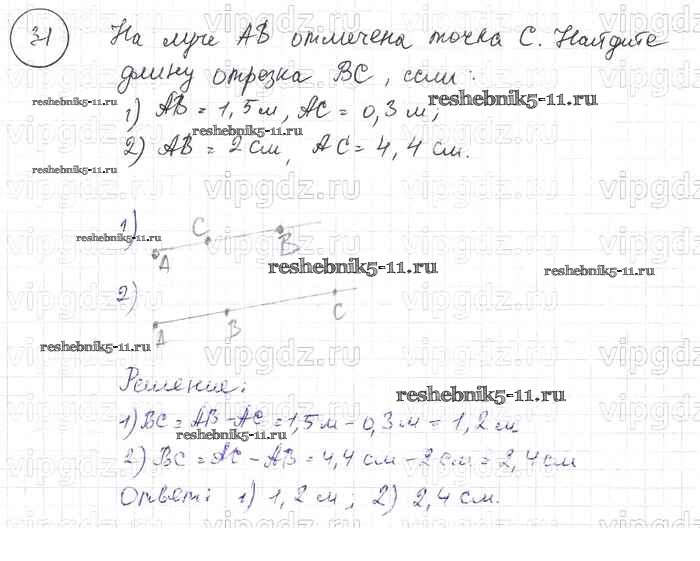 31
На луче АВ отмечена точка С. Найдите
длину отрезка ВС, если:
1) АВ = 1,5 м, АС = 0,3 м;
2) АВ = 2 см, АС = 4,4 см.
1)
A C B
2)
A B C
Решение:
1) ВС = АВ - АС = 1,5 м - 0,3 м = 1,2 м
2) ВС = АС - АВ = 4,4 см - 2 см = 2,4 см
Ответ: 1) 1,2 м; 2) 2,4 см.
reshebnik5-11.ru
vipgdz.ru